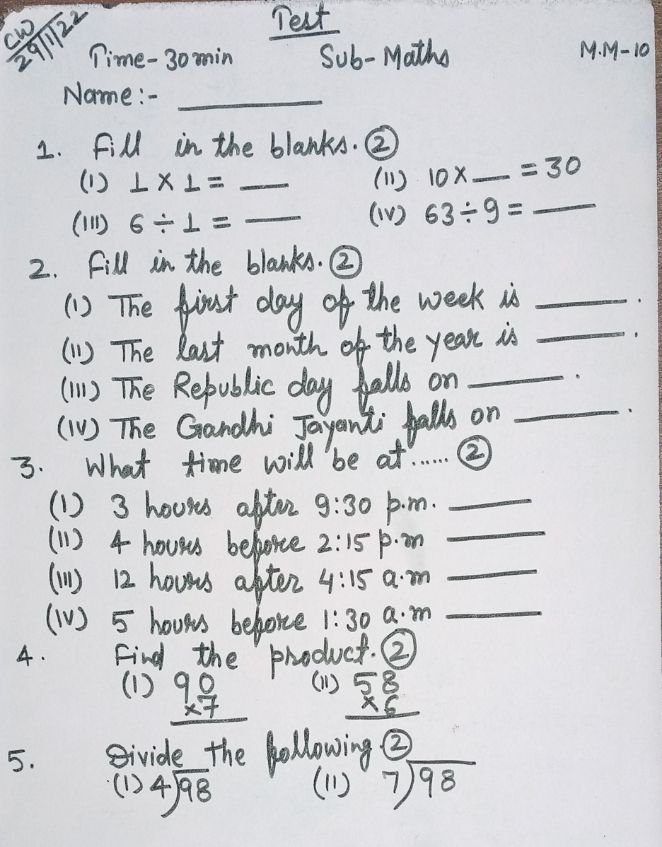 CW
29/11/22
Test
Time- 30 min Sub- Maths M.M-10
Name:- ________
1. Fill in the blanks. ②
(I) 1 X 1 = ___ (II) 10 X ___ = 30
(III) 6 ÷ 1 = ___ (IV) 63 ÷ 9 = ___
2. Fill in the blanks. ②
(I) The first day of the week is ______.
(II) The last month of the year is ______.
(III) The Republic day falls on ______.
(IV) The Gandhi Jayanti falls on ______.
3. What time will be at ...... ②
(I) 3 hours after 9:30 p.m. ______
(II) 4 hours before 2:15 p.m ______
(III) 12 hours after 4:15 a.m ______
(IV) 5 hours before 1:30 a.m ______
4. Find the product. ②
(I) 90 (II) 58
x7 x6
5. Divide the following ②
(I) 4)98 (II) 7)98